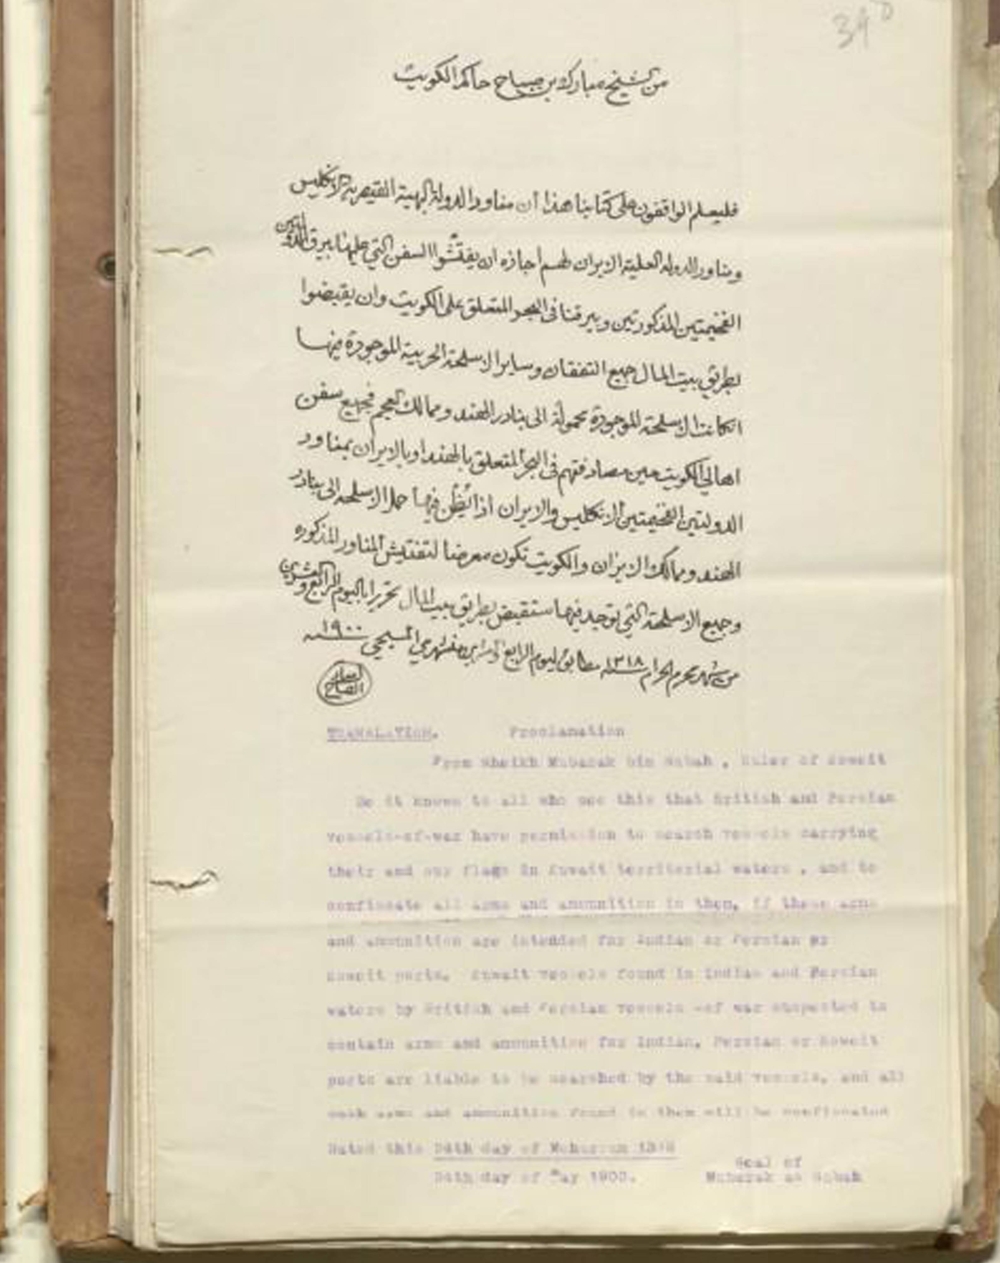 39
من الشيخ مبارك بن صباح حاكم الكويت
فليعلم الواقفون على كتابنا هذا أن مناور الدولة البهية القيصرية الانكليس
ومناور الدوله العلية الايران لهم اجازه ان يفتشوا السفن التي عليها بيرق الدولتين
الفخيمتين المذكورتين وبيرقنا في البحر المتعلق على الكويت وان يقبضوا
بطريق بيت المال جميع التفقان وساير الاسلحة الحربية الموجودة فيها
انكانت الاسلحة الموجودة محمولة الى بنادر الهند وممالك العجم فجميع سفن
اهالي الكويت حين مصادفتهم في البحر المتعلق بالهند او بالايران بمناور
الدولتين الفخيمتين الانكليس والايران اذا يُظن فيها حمل الاسلحه الى بنادر
الهند وممالك الايران والكويت تكون معرضا لتفتيش المناور المذكوره
وجميع الاسلحة التي توجد فيها ستقبض بطريق بيت المال تحريرا باليوم الرابع والعشرين
من شهر محرم الحرام ١٣١٨ مطابق ليوم الرابع المسيحي ١٩٠٠
TRANSLATION. Proclamation
From Sheikh Mubarak bin Sabah , Ruler of Koweit
Be it known to all who see this that British and Persian
vessels-of-war have permission to search vessels carrying
their and our flags in Kuwait territorial waters , and to
confiscate all arms and ammunition in them, if these arms
and ammunition are intended for Indian or Persian or
Koweit ports. Kuwait vessels found in Indian and Persian
waters by British and Persian vessels -of war suspected to
contain arms and ammunition for Indian, Persian or Koweit
ports are liable to be searched by the said vessels, and all
such arms and ammunition found in them will be confiscated
Dated this 24th day of Moharram 1318
24th day of May 1900.
Seal of
Mubarak as Sabah